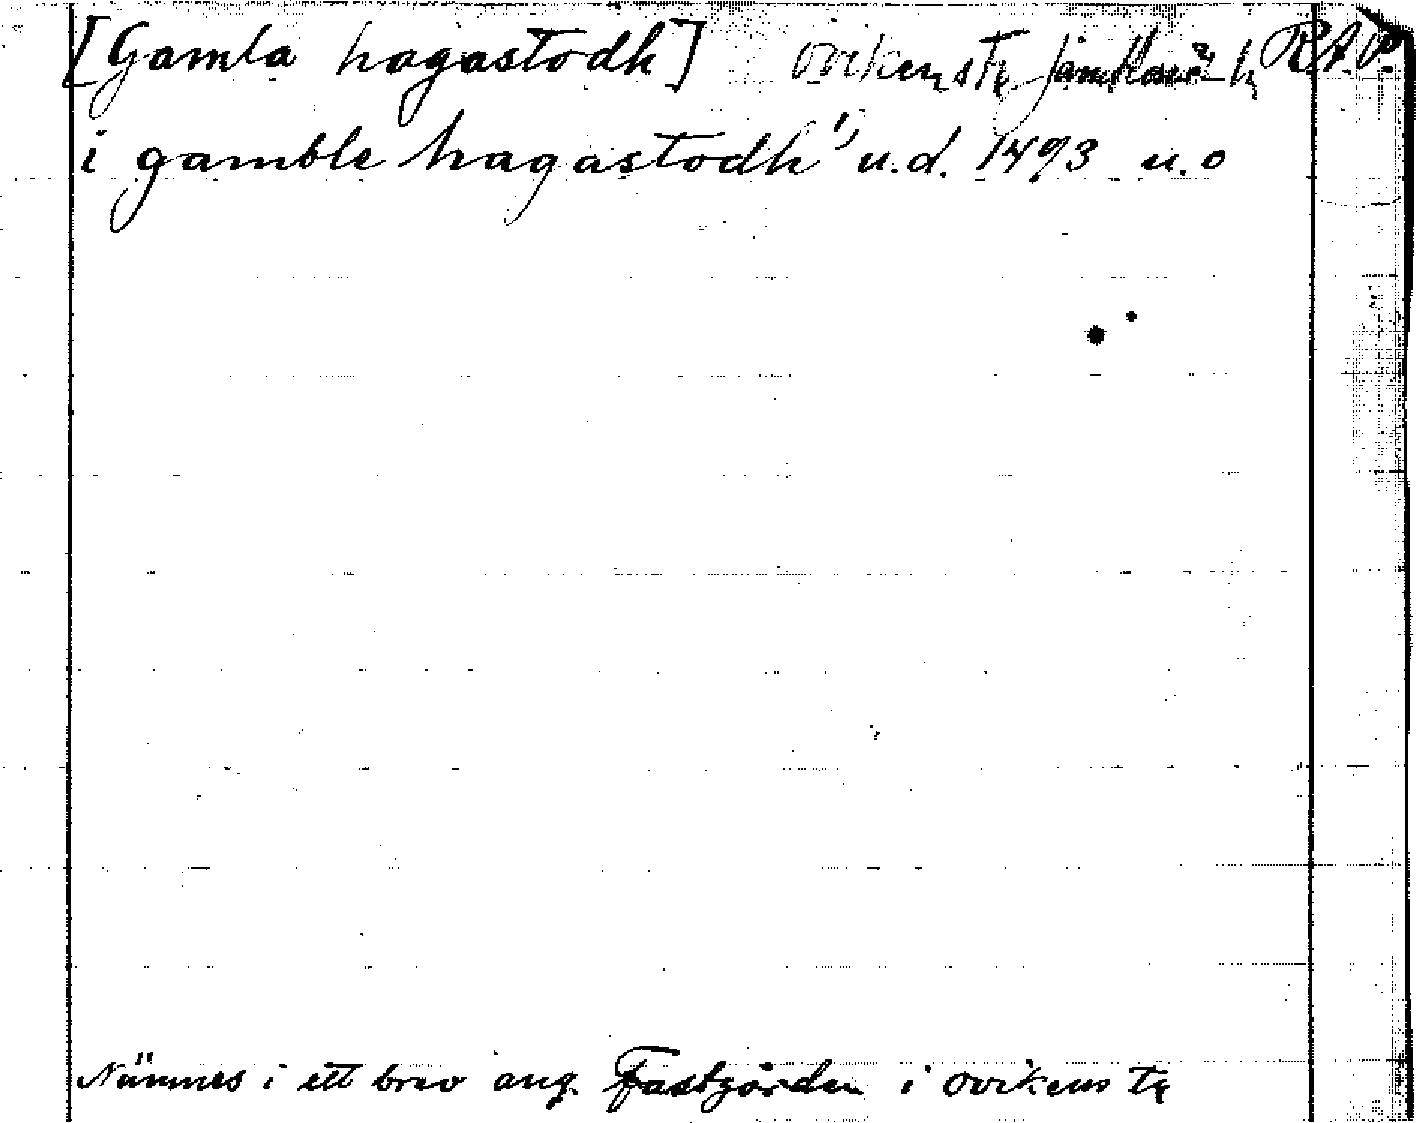 [Gamla hagastodh] Ovikens tg Jämtlands l. R.A.P.
i gamble hagastodh" u.d. 1493 u.o
Nämnes i ett brev ang. Fastgården i Ovikens tg